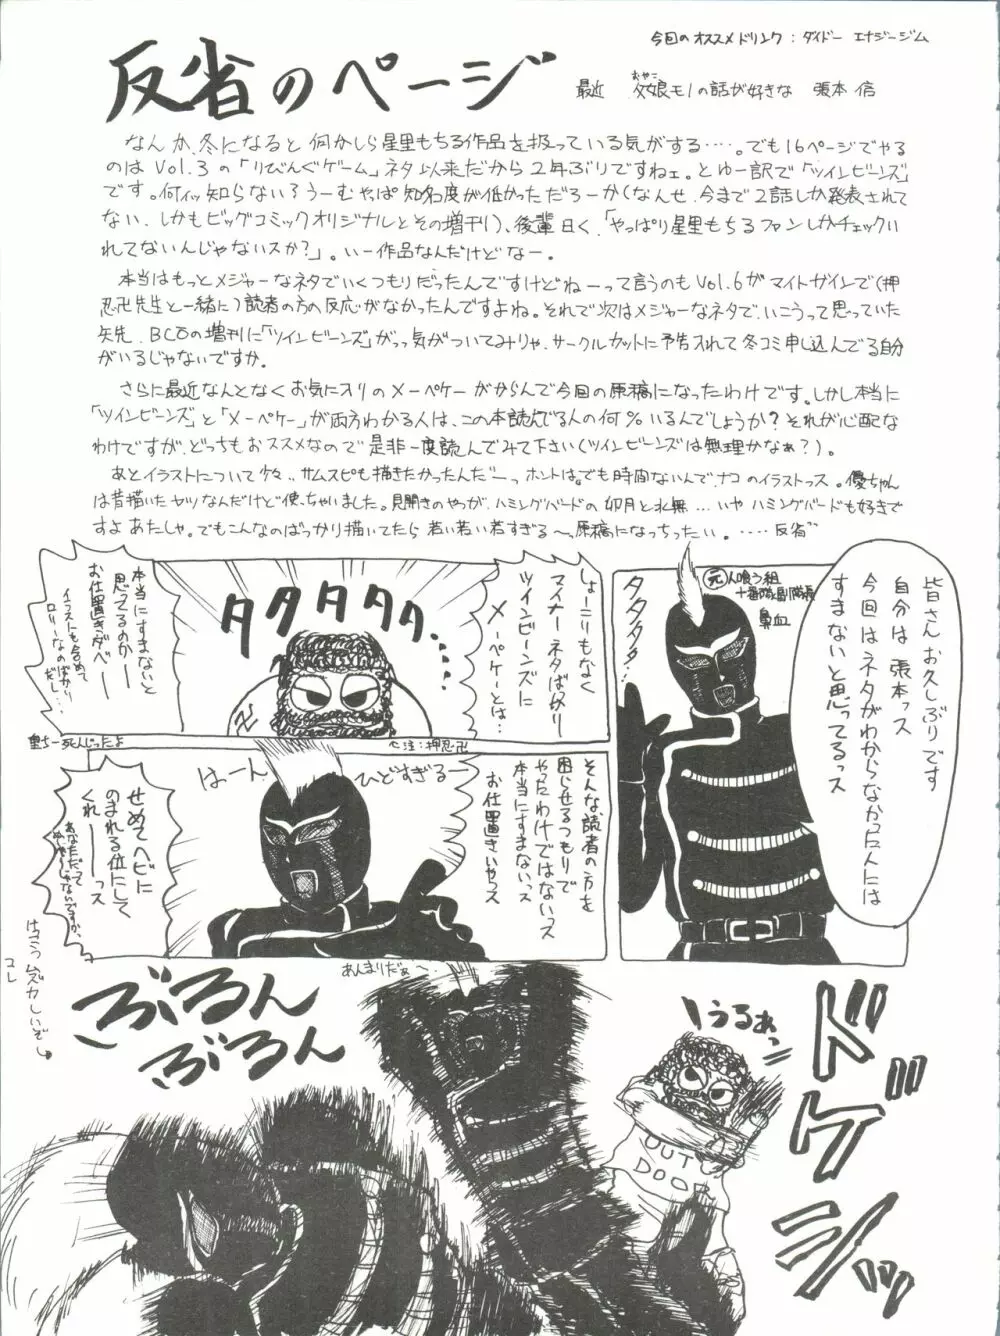 今回のオススメドリンク：ダイドー エナジージム
反省のページ
最近 父娘モノの話が好きな 張本 信
おやこ
なんか、冬になると何かしら星里もちる作品を扱っている気がする……。でも16ページでやる
のはVol.3の「りびんぐゲーム」ネタ以来だから2年ぶりですねェ。とゆー訳で「ツインビーンズ」
です。何ィッ知らない？うーむやっぱ知名度が低かっただろーか（なんせ、今まで2話しか発表されて
ない、しかもビッグコミックオリジナルとその増刊）、後輩曰く、「やっぱり星里もちるファンしかチェックい
れてないんじゃないスか？」。いー作品なんだけどなー。
本当はもっとメジャーなネタでいくつもりだったんですけどねーって言うのもVol.6がマイトガインで（押
忍卍先生と一緒に）読者の方の反応がなかったんですよね。それで次はメジャーなネタで、いこうって思っていた
矢先、BCOの増刊に「ツインビーンズ」がっっ気がついてみりゃ、サークルカットに予告されて冬コミ申し込んでる自分
がいるじゃないですか。
さらに最近なんとなくお気に入りのメーペケーがからんで今回の原稿になったわけです。しかし本当に
「ツインビーンズ」と「メーペケー」が両方わかる人は、この本読んでる人の何％いるんでしょうか？それが心配な
わけですが、どっちもおススメなので是非一度読んでみて下さい（ツインビーンズは無理かなぁ？）。
あとイラストについて少々、サムスピも描きたかったんだーっホントは。でも時間ないんで、ナコのイラストっス。優ちゃん
は昔描いたヤツなんだけど使っちゃいました。見開きのやつが、ハミングバードの卯月と水無…いや ハミングバードも好きで
すよあたしゃ。でもこんなのばっかり描いてたら若い若い若すぎる〜っ原稿になっちったい。……反省
皆さんお久しぶりです
自分は張本っス
今回はネタがわからなかった人には
すまないと思ってるっス
元人喰う組
十番隊副隊長
鼻血
タタタタ
しょーこりもなく
マイナーネタばかり
ツインビーンズに
メーペケーとは…
タタタタタ、
本当にすまないと
思ってるのかーー
お仕置きダベー
イラストも含めて
ロリーなのばかり
だし…
卍
←注：押忍卍
そんな、読者の方を
困らせるつもりで
やったわけではないっス
本当にすまないっス
お仕置きいやっス
ひどすぎるー
はーん
せめてヘビに
のまれる位にして
くれーーっス
はっきつムズカしいぞ
コレ
あんまりだぁ〜
ぶるんぶるん
うるぁっ
OUT
DOOR
ドドゲシッ